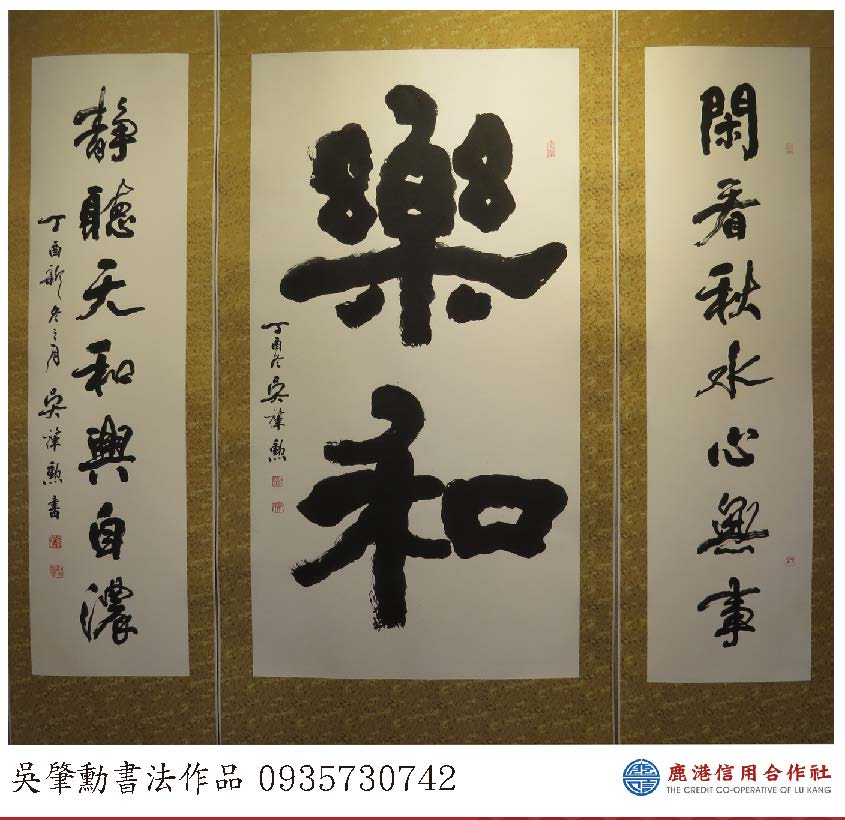 閑看秋水心無事
樂和
丁酉冬 吳肇勳
靜聽天和興自濃
丁酉 冬 月 吳肇勳書
吳肇勳書法作品 0935730742
鹿港信用合作社
THE CREDIT CO-OPERATIVE OF LU KANG